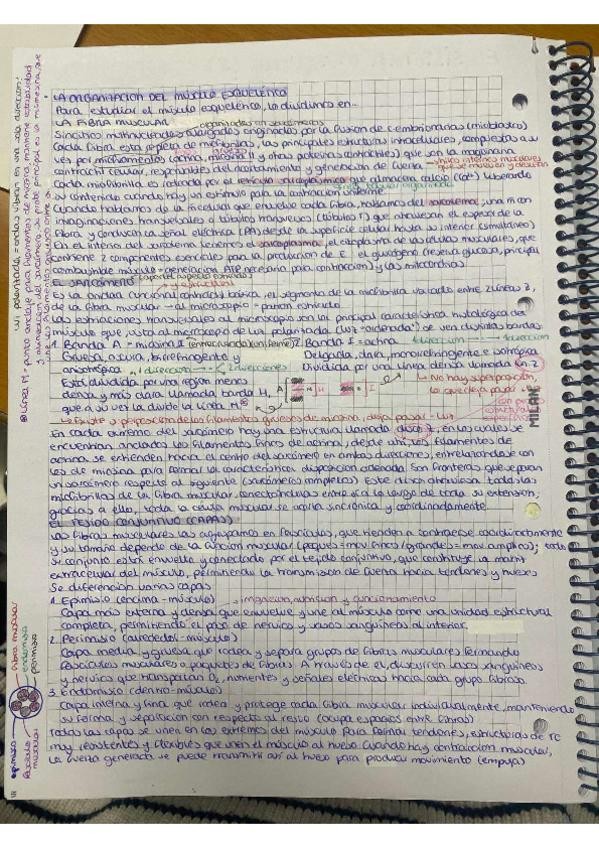 LA ORGANIZACIÓN DEL MÚSCULO ESQUELÉTICO
Para estudiar el músculo esquelético, lo dividimos en...
LA FIBRA MUSCULAR organizadas en sarcómeros
Sincitios multinucleados alargados originados por la fusión de c. embrionarias (mioblastos)
Cada fibra está repleta de miofibrillas, las principales estructuras intracelulares, compuestas a su
vez por miofilamentos (actina, miosina II y otras proteínas contráctiles) que son la maquinaria
contráctil celular, responsables del acortamiento y generación de fuerza
Cada miofibrilla es rodeada por el retículo sarcoplásmico que almacena calcio (Ca²⁺) liberando
su contenido cuando hay un estímulo para la contracción uniforme.
Cuando hablamos de la bicapa que envuelve cada fibra, hablamos del sarcolema; una m con
invaginaciones transversales o túbulos transversos (túbulos T) que atraviesan el espesor de la
fibra y conducen la señal eléctrica (PA) desde la superficie celular hasta su interior (simultáneo)
En el interior del sarcolema tenemos el sarcoplasma, el citoplasma de las células musculares, que
contiene 2 componentes esenciales para la producción de E: el glucógeno (reserva glucosa, principal
combustible músculo = generación ATP necesario para contracción) y las mitocondrias
EL SARCÓMERO
y estructural
Es la unidad funcional contráctil básica, el segmento de la miofibrilla situado entre 2 líneas Z,
de la fibra muscular → al microscopio = patrón estriado
Las estriaciones transversales al microscopio son la principal característica histológica del
músculo, que vista al microscopio de luz polarizada (luz "ordenada") se ven distintas bandas:
1. Banda A = miosina II 2. Banda I = actina
Gruesa, oscura, birrefringente y Delgada, clara, monorrefringente e isotrópica
anisotrópica 1 dirección → 2 direcciones Dividida por una línea densa llamada línea Z
Está dividida por una región menos A H I → No hay superposición,
densa y más clara llamada banda H, lo que deja pasar
que a su vez la divide la línea M
MILAN
En cada extremo del sarcómero hay una estructura llamada disco Z, en los cuales se
encuentran anclados los filamentos finos de actina, desde ahí, los filamentos de
actina se extienden hacia el centro del sarcómero en ambas direcciones, entrelazándose con
los de miosina para formar la característica disposición ordenada. Son fronteras que separan
un sarcómero respecto al siguiente (sarcómeros completos) Este disco atraviesa todas las
miofibrillas de la fibra muscular, conectándolas entre sí a lo largo de toda su extensión;
gracias a ello, toda la célula muscular se acorta sincrónica y coordinadamente.
EL TEJIDO CONJUNTIVO (CAPAS)
Las fibras musculares las agrupamos en fascículos, que tienden a contraerse coordinadamente
y su tamaño depende de la función muscular (peques = mov. finos / grandes = mov. amplios); todo
su conjunto está envuelto y conectado por el tejido conjuntivo, que constituye la matriz
extracelular del músculo, permitiendo la transmisión de fuerza hacia tendones y huesos
Se diferencian varias capas
1. Epimisio (encima-músculo)
Capa más externa y densa que envuelve y une al músculo como una unidad estructural
completa, permitiendo el paso de nervios y vasos sanguíneos al interior.
2. Perimisio (alrededor-músculo)
Capa media, y gruesa que rodea y separa grupos de fibras musculares formando
fascículos musculares o paquetes de fibras. A través de él, discurren vasos sanguíneos
y nervios que transportan O₂, nutrientes y señales eléctricas hacia cada grupo fibroso
3. Endomisio (dentro-músculo)
Capa interna y fina que rodea y protege cada fibra muscular individualmente, manteniendo
su forma y separación con respecto al resto (ocupa espacios entre fibras)
Todas las capas se unen en los extremos del músculo para formar tendones, estructuras de TC
muy resistentes y flexibles que unen el músculo al hueso. Cuando hay contracción muscular,
la fuerza generada se puede transmitir así al hueso para producir movimiento (empuja)
Luz polarizada = ondas vibran en una sola dirección.
Línea M = punto anclaje para filamentos de miosina, mantiene estabilidad
fibra muscular
endomisio
perimisio
epimisio
fascículo
muscular